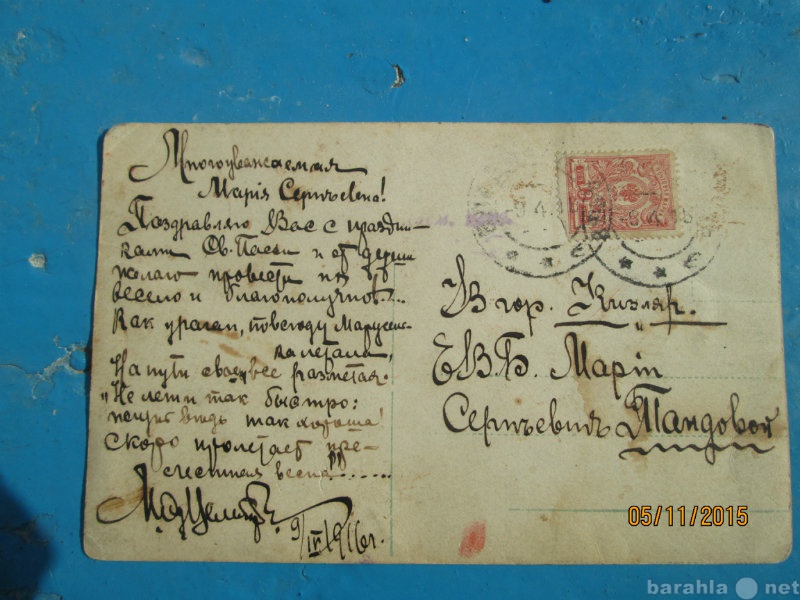 Многоуважаемая
Марія Сергѣевна!
Поздравляю Вас с праздни-
ками Св. Пасхи и от души
желаю провести их
весело и благополучно....
Как ураган, повсюду Маруся
налетала,
На пути своем все разметая.
"Не лети так быстро:
жизнь ведь так хороша!
Скоро пролетает пре-
лестная весна".....
9/IV 1916 г.
В гор. Кизляр.
Е.В.Б. Маріи
Сергѣевнѣ Тандовой
05/11/2015
barahla net